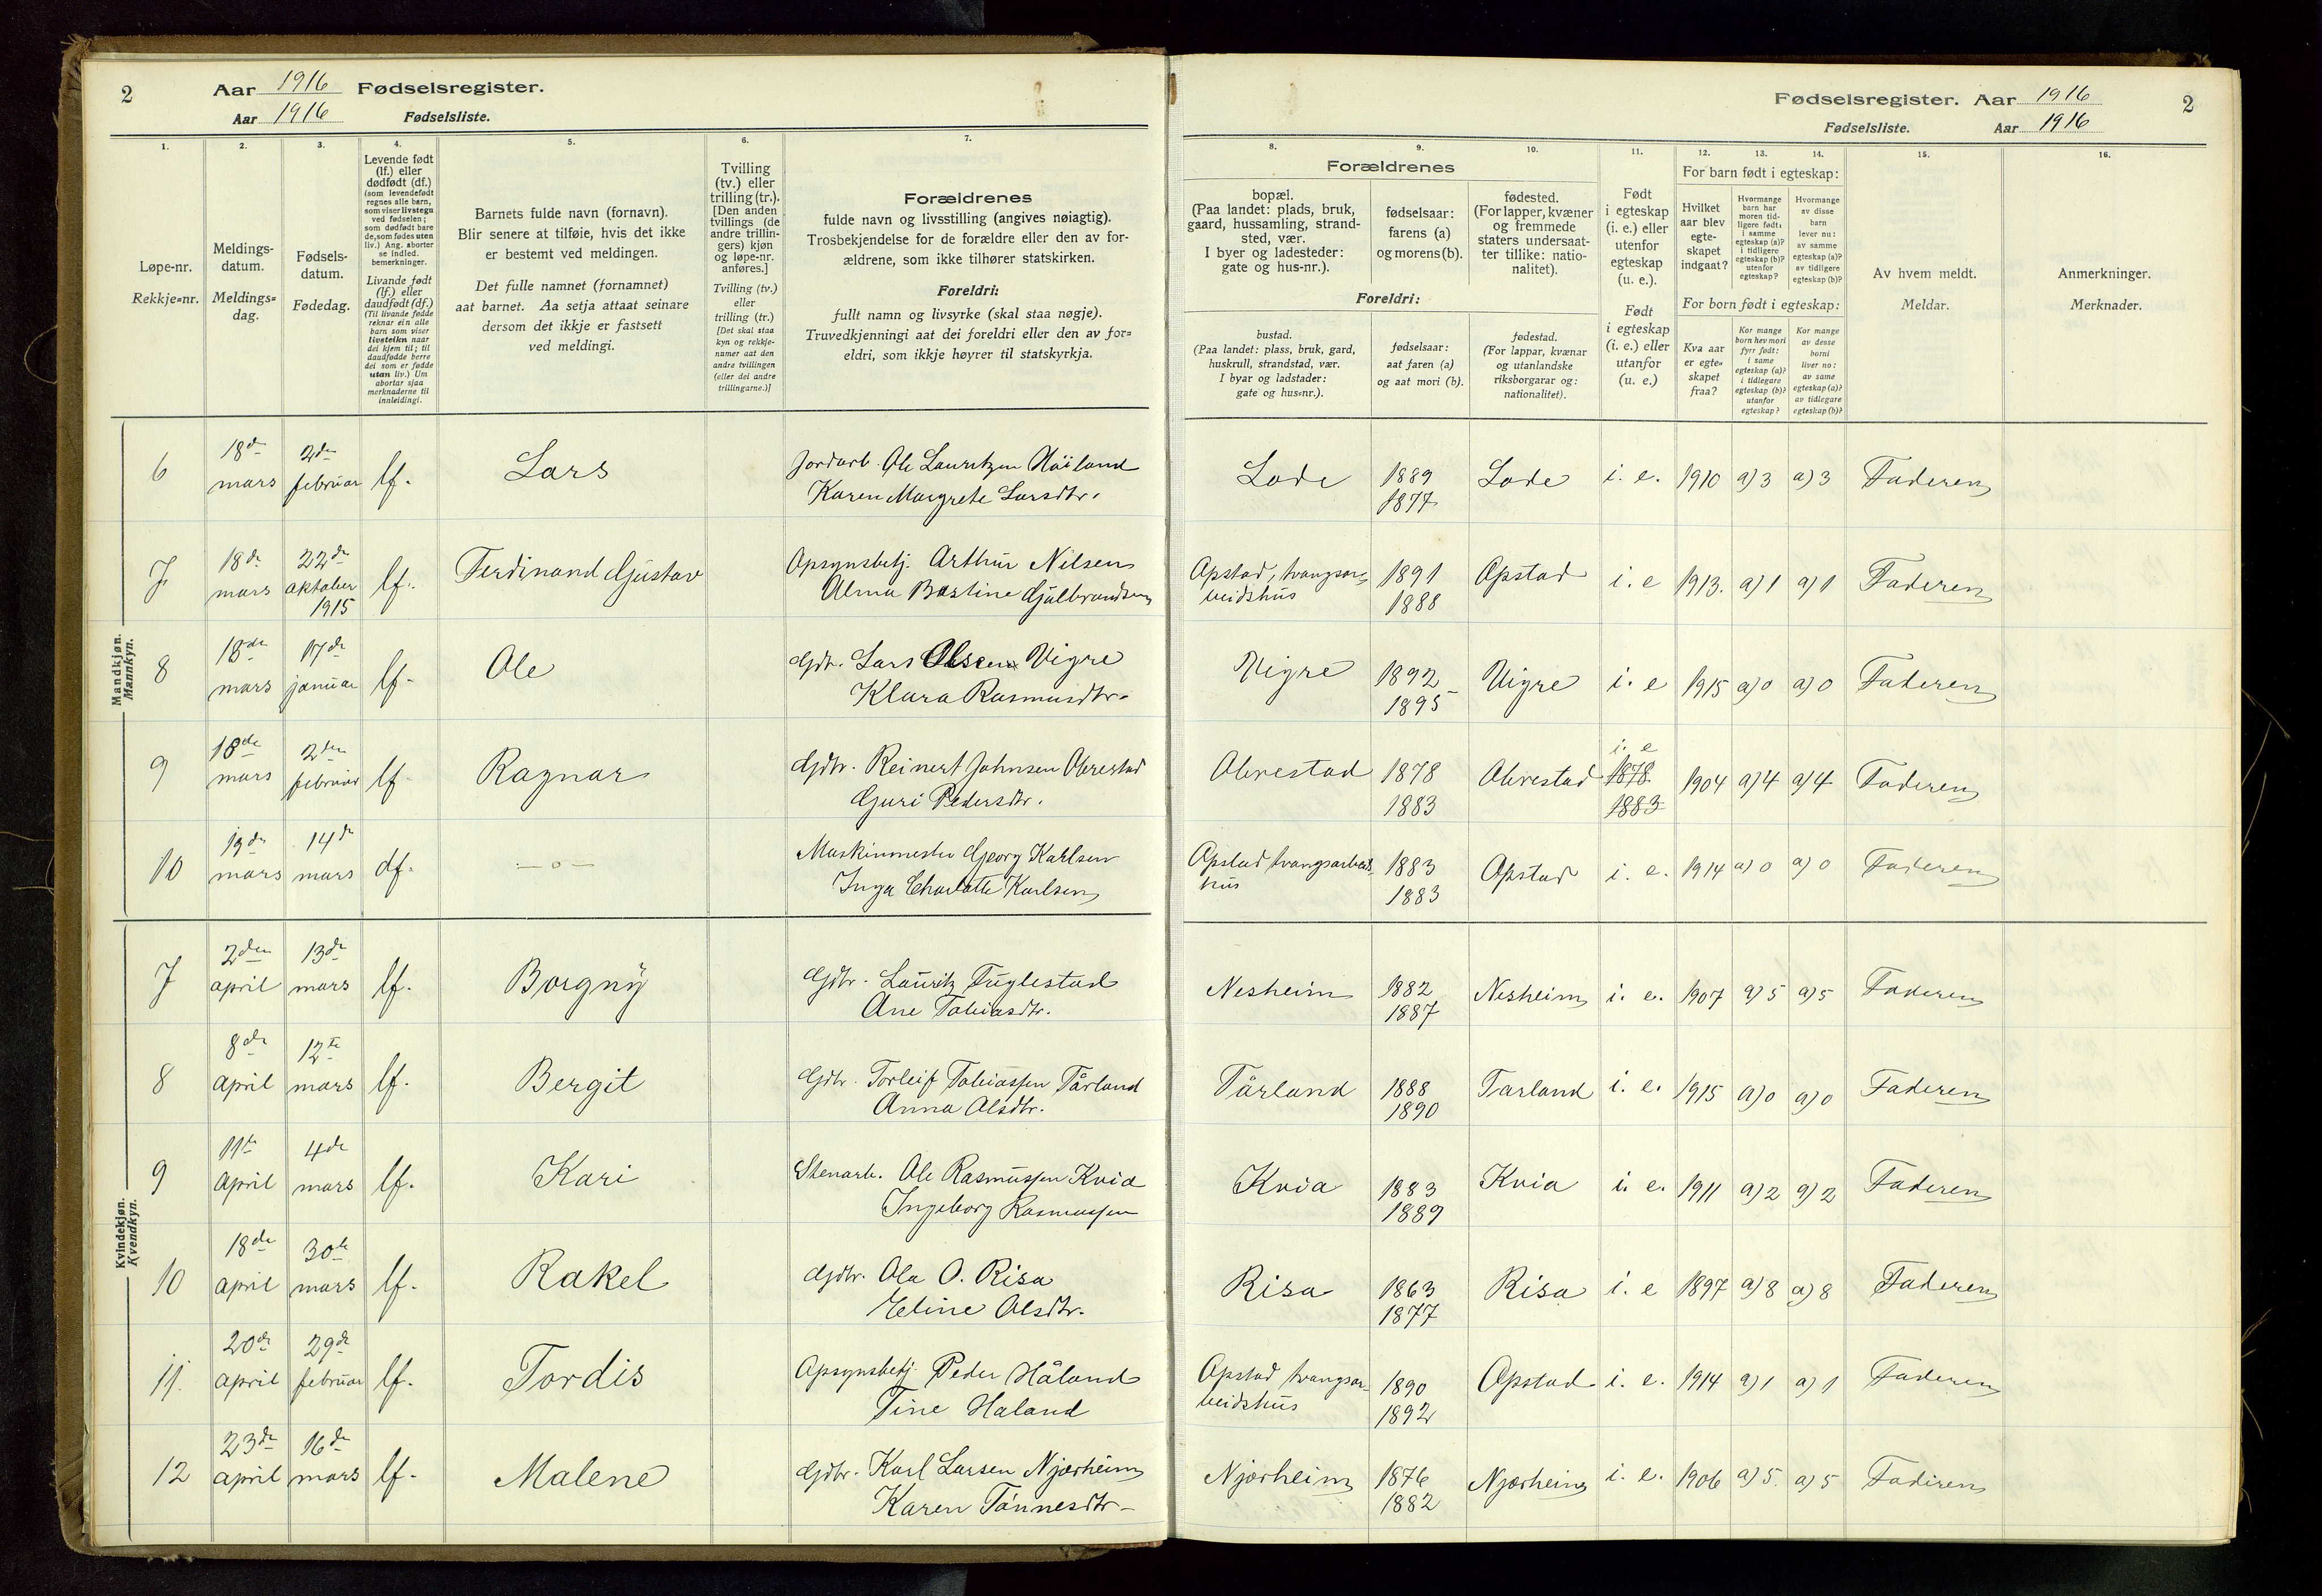 2
Aar 1916 Fødselsregister.
Aar 1916 Fødselsliste.
1.
2.
3.
4.
5.
6.
7.
Løpe-nr.
Rekkje=nr.
Meldings-
datum.
Meldings=
dag.
Fødsels-
datum.
Fødedag.
Levende født
(lf.) eller
dødfødt (df.)
(som levendefødt
regnes alle barn,
som viser livstegn
ved fødselen;
som dødfødt bare
de, som fødes uten
liv.) Ang. aborter
se indled.
bemerkninger.
Livande født
(lf.) eller
daudfødt (df.)
(Til livande fødde
reknar ein alle
barn som viser
livsteikn naar
dei kjem til; til
daudfødde berre
dei som er fødde
utan liv.) Um
abortar sjaa
merknaderne til
innleidingi.
Barnets fulde navn (fornavn).
Blir senere at tilføie, hvis det ikke
er bestemt ved meldingen.
Det fulle namnet (fornamnet)
aat barnet. Aa setja attaat seinare
dersom det ikkje er fastsett
ved meldingi.
Tvilling
(tv.) eller
trilling (tr.).
[Den anden
tvillings (de
andre trillin-
gers) kjøn
og løpe-nr.
anføres.]
Tvilling (tv.)
eller
trilling (tr.)
[Det skal staa
kyn og rekkje-
numer aat den
andre tvillingen
(eller dei andre
trillingarne.)]
Forældrenes
fulde navn og livsstilling (angives nøiagtig).
Trosbekjendelse for de forældre eller den av for-
ældrene, som ikke tilhører statskirken.
Foreldri:
fullt namn og livsyrke (skal staa nøgje).
Truvedkjenningi aat dei foreldri eller den av for=
eldri, som ikkje høyrer til statskyrkja.
Mandkjøn.
Mannkyn.
6 18de mars 2den februar lf. Lars Jordarb. Ole Lauritzen Håiland
Karen Margrete Larsdtr.
7 18de mars 22de oktober 1915 lf. Ferdinand Gustav Opsynsbetj. Arthur Nilsen
Alma Bastine Gulbrandsen
8 18de mars 17de januar lf. Ole Gdbr. Lars Olsen Vigre
Klara Rasmusdtr.
9 18de mars 2den februar lf. Ragnar Gdbr. Reinert Johnsen Obrestad
Guri Pedersdtr.
10 19de mars 14de mars df. —o— Maskinmester Georg Karlsen
Inga Charlotte Karlsen
Kvindekjøn.
Kvendkyn.
7 2den april 13de mars lf. Borgny Gdbr. Lauritz Fuglestad
Ane Tobiasdtr.
8 8de april 12te mars lf. Bergit Gdbr. Torleif Tobiassen Tårland
Anna Olsdtr.
9 11te april 4de mars lf. Kari Stenarb. Ole Rasmussen Kvia
Ingeborg Rasmussen
10 18de april 30te mars lf. Rakel Gdbr. Ola O. Risa
Eline Olsdtr.
11. 20de april 29de februar lf. Tordis Opsynsbetj. Peder Håland
Tine Haland
12 23de april 16de mars lf. Malene Gdbr. Karl Larsen Njærheim
Karen Tønnesdtr.
Fødselsregister. Aar 1916 2
Fødselsliste. Aar 1916
8.
9.
10.
11.
12.
13.
14.
15.
16.
Forældrenes
bopæl.
(Paa landet: plads, bruk,
gaard, hussamling, strand-
sted, vær.
I byer og ladesteder:
gate og hus-nr.).
fødselsaar:
farens (a)
og morens (b).
fødested.
(For lapper, kvæner
og fremmede
staters undersaat-
ter tillike: natio-
nalitet).
Foreldri:
bustad.
(Paa landet: plass, bruk, gard,
huskrull, strandstad, vær.
I byar og ladstader:
gate og hus=nr.).
fødselsaar:
aat faren (a)
og aat mori (b).
fødestad.
(For lappar, kvænar
og utanlandske
riksborgarar og:
nationalitet).
Født
i egteskap
(i. e.) eller
utenfor
egteskap
(u. e.).
Født
i egteskap
(i. e.) eller
utanfor
(u. e.)
For barn født i egteskap:
Hvilket
aar blev
egte-
skapet
indgaat?
Hvormange
barn har
moren tid-
ligere født:
i samme
egteskap (a)?
i tidligere
egteskap (b)?
utenfor
egteskap?
Hvormange
av disse
barn
lever nu:
av samme
egteskap (a)?
av tidligere
egteskap (b)?
For born født i egteskap:
Kva aar
er egte-
skapet
fraa?
Kor mange
born hev mori
fyrr født:
i same
egteskap (a)?
i tidlegare
egteskap (b)?
utanfor
egteskap?
Kor mange
av desse
borni
liver no:
av same
egteskap (a)?
av tidlegare
egteskap (b)?
Av hvem meldt.
Meldar.
Anmerkninger.
Merknader.
Lode 1889 1877 Lode i. e. 1910 a) 3 a) 3 Faderen
Opstad, tvangsar-
beidshus 1891 1888 Opstad i. e 1913. a) 1 a) 1 Faderen
Vigre 1892 1895 Vigre i. e 1915 a) 0 a) 0 Faderen
Obrestad 1878 1883 Obrestad i. e 1878. 1883 1904 a) 4 a) 4 Faderen
Opstad tvangsarbeids-
hus 1883 1883 Opstad i. e. 1914 a) 0 a) 0 Faderen
Nesheim 1882 1887 Nesheim i. e. 1907 a) 5 a) 5 Faderen
Tårland 1888 1890 Tarland i. e. 1915 a) 0 a) 0 Faderen
Kvia 1883 1889 Kvia i. e. 1911 a) 2 a) 2 Faderen
Risa 1863 1877 Risa i. e 1897 a) 8 a) 8 Faderen
Opstad tvangsar-
beidshus 1890 1892 Opstad i. e. 1914 a) 1 a) 1 Faderen
Njærheim 1876 1882 Njærheim i. e. 1906 a) 5. a) 5 Faderen